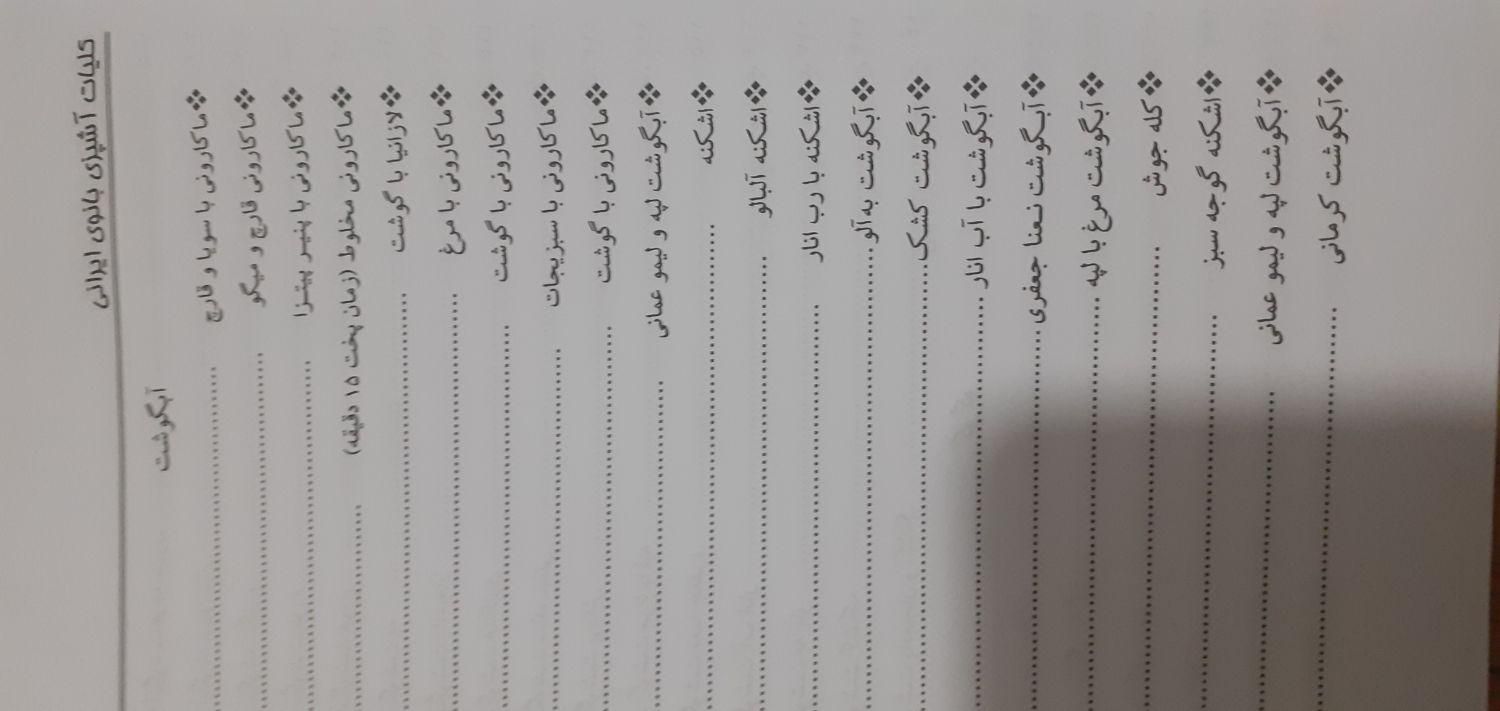 کلیات آشپزی بانوی ایرانی
آبگوشت
❖ماکارونی با سویا و قارچ ........................................
❖ماکارونی قارچ و میگو ........................................
❖ماکارونی با پنیر پیتزا ........................................
❖ماکارونی مخلوط (زمان پخت ۱۵ دقیقه) ........................................
❖لازانیا با گوشت ........................................
❖ماکارونی با مرغ ........................................
❖ماکارونی با گوشت ........................................
❖ماکارونی با سبزیجات ........................................
❖ماکارونی با گوشت ........................................
❖آبگوشت لپه و لیمو عمانی ........................................
❖اشکنه ........................................
❖اشکنه آلبالو ........................................
❖اشکنه با رب انار ........................................
❖آبگوشت به آلو ........................................
❖آبگوشت کشک ........................................
❖آبگوشت با آب انار ........................................
❖آبگوشت نعنا جعفری ........................................
❖آبگوشت مرغ با لپه ........................................
❖کله جوش ........................................
❖اشکنه گوجه سبز ........................................
❖آبگوشت لپه و لیمو عمانی ........................................
❖آبگوشت کرمانی ........................................